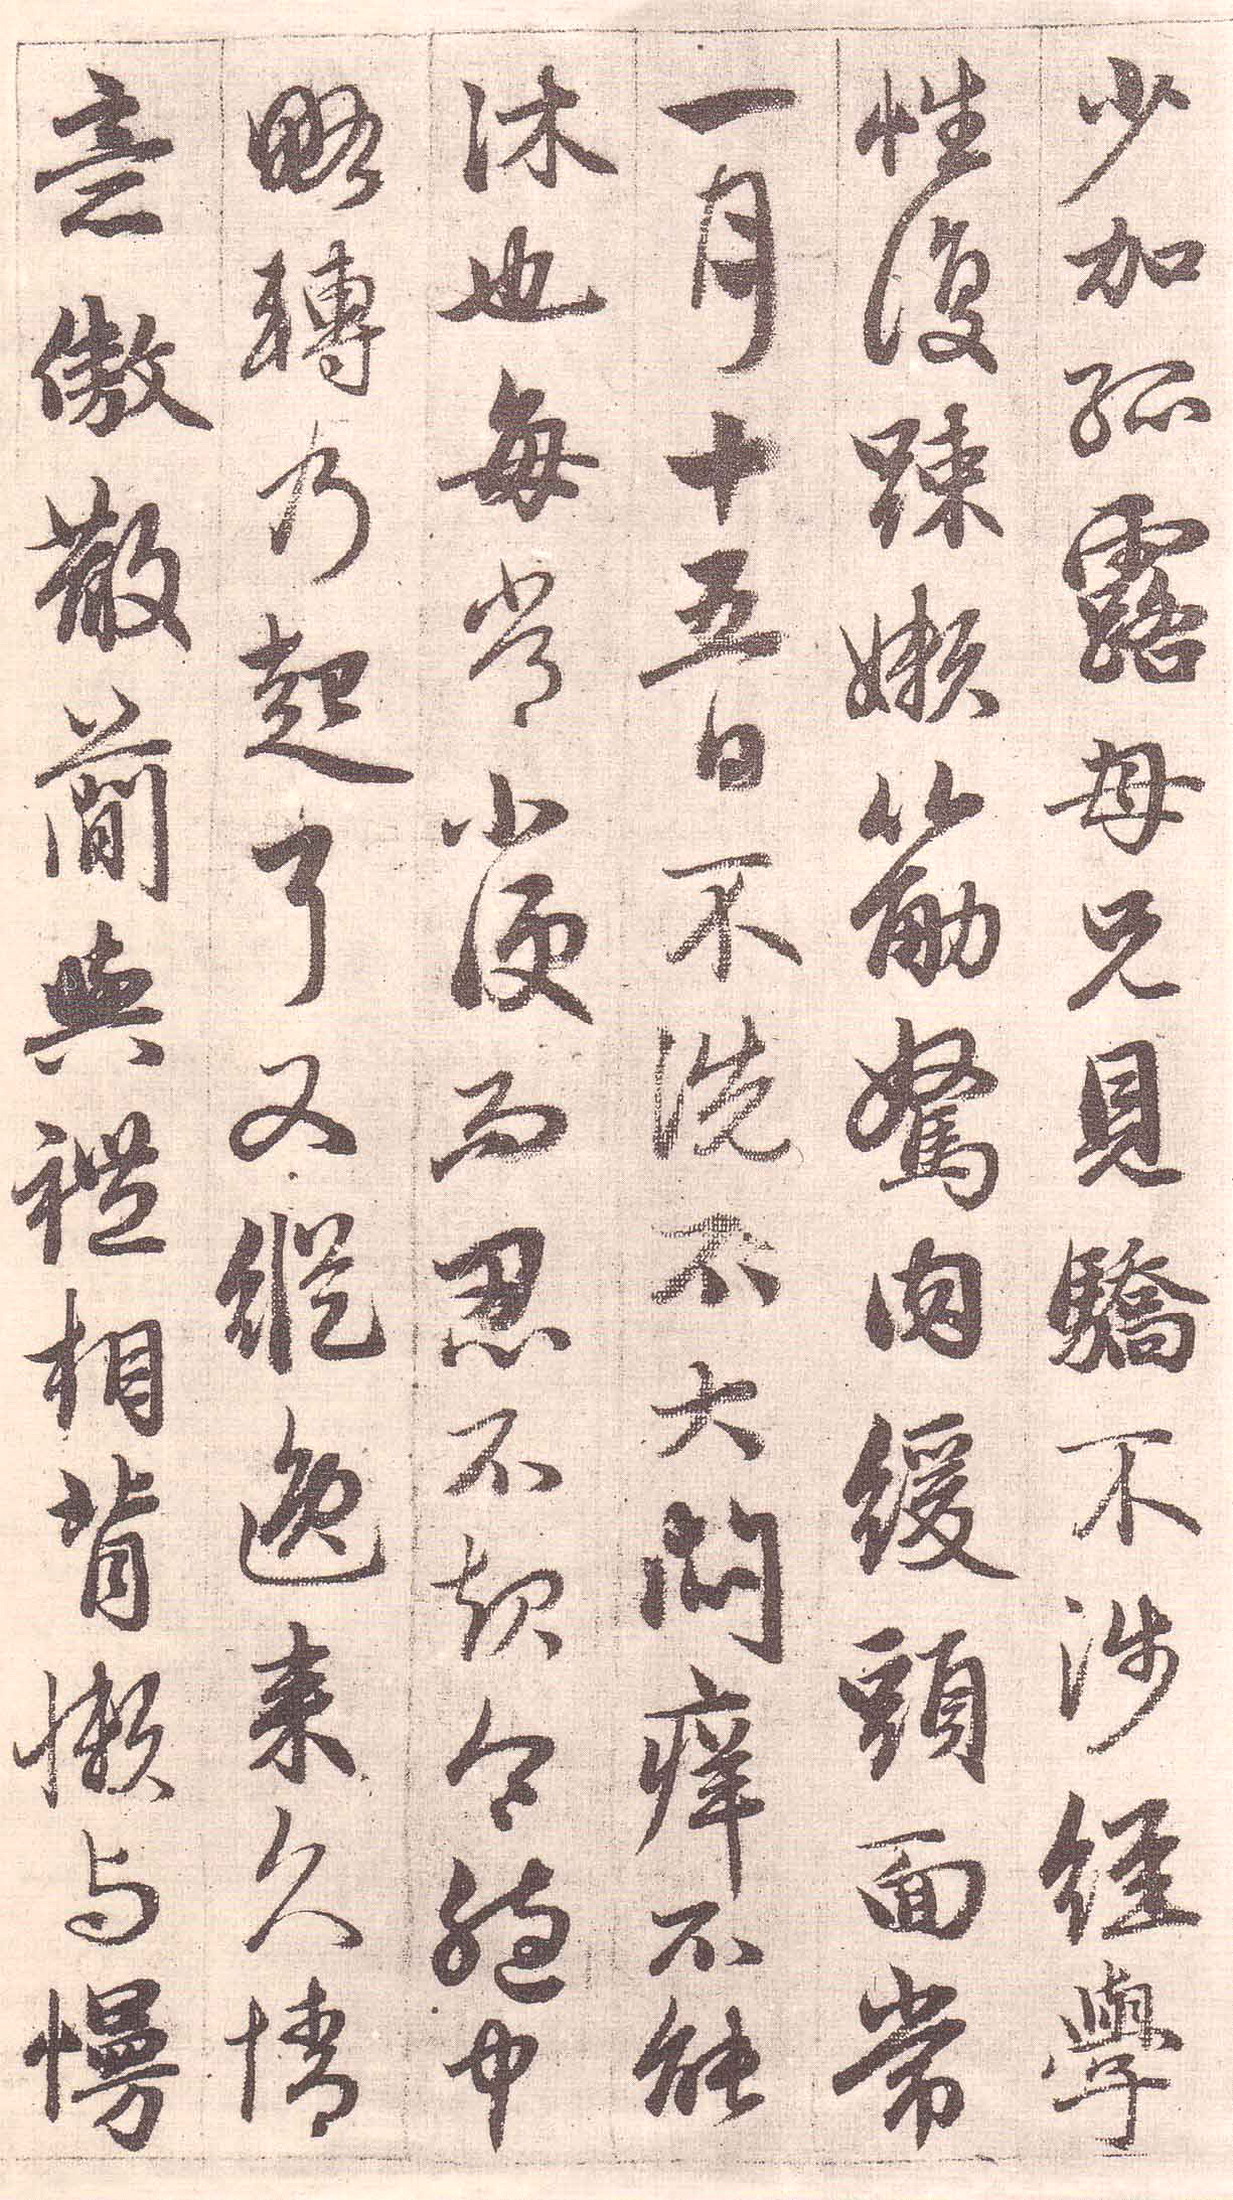 少加孤露母兄見驕不涉經學
性復踈嬾筋駑肉緩頭面常
一月十五日不洗不大悶痒不能
沐也每常小便而忍不起令胞中
略轉乃起耳又縱逸来久情
意傲散簡與禮相背懒与慢